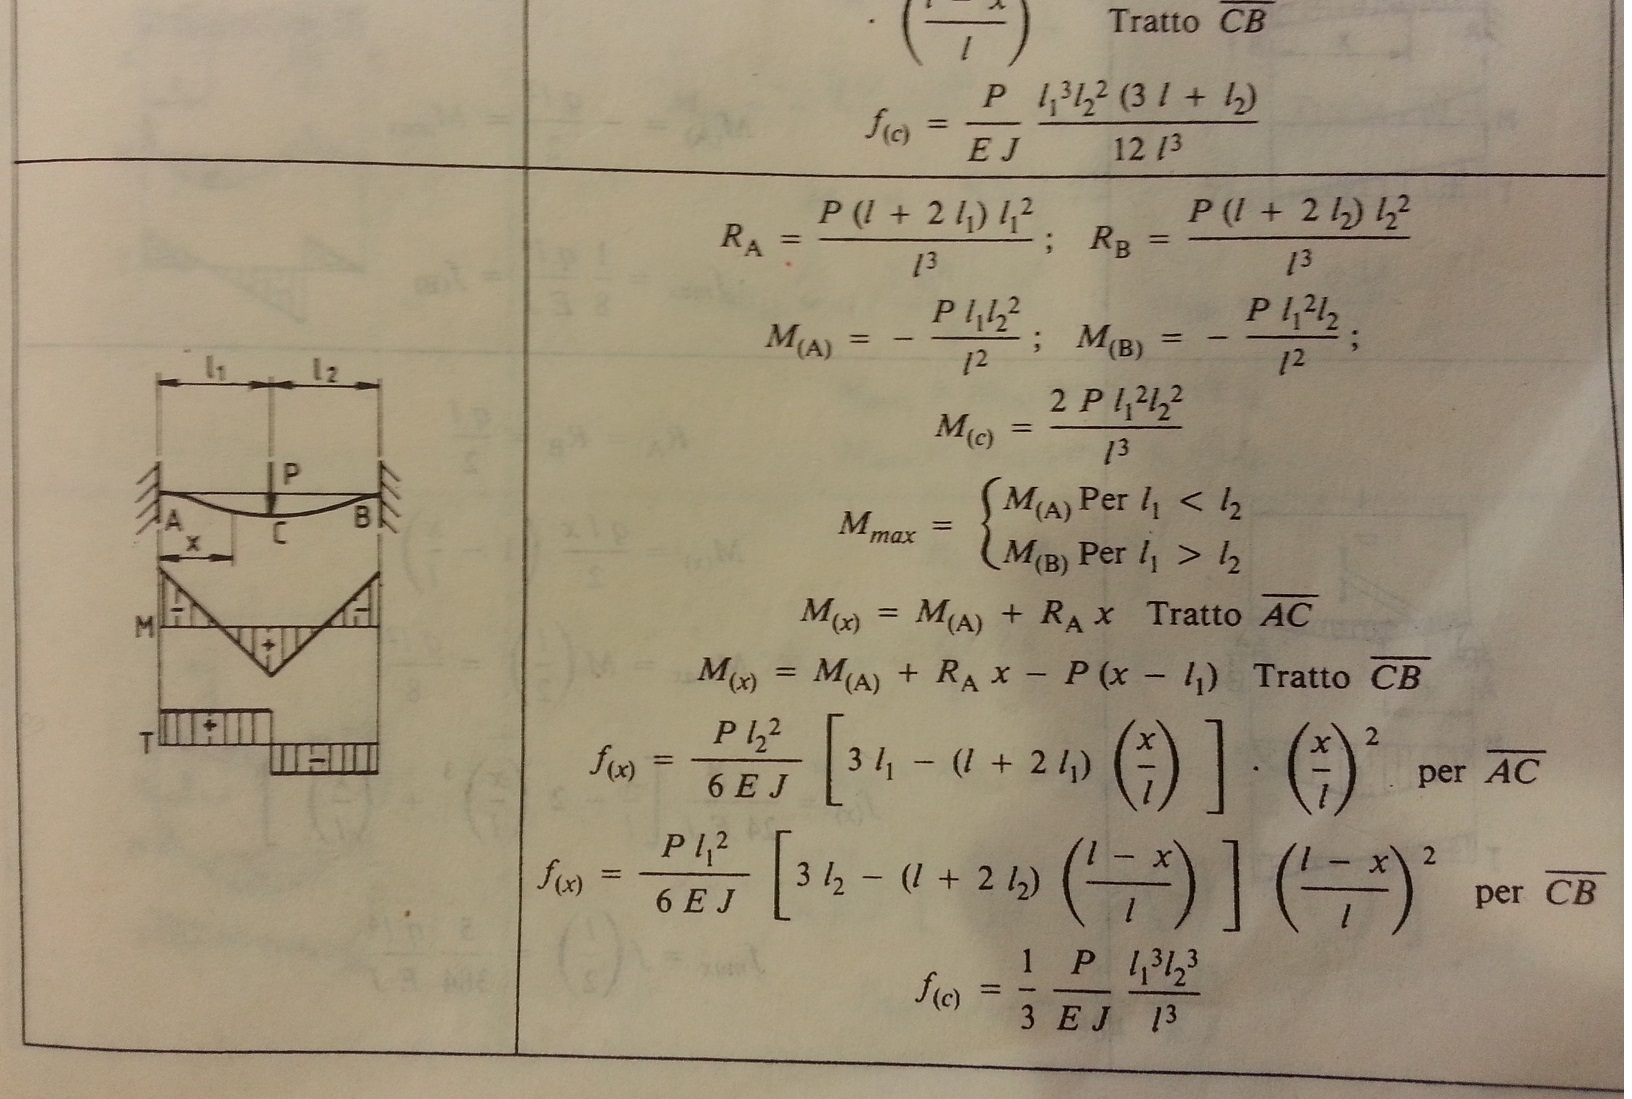 · ((l − x)/l) Tratto CB
f(c) = P/(E J) · l₁³l₂² (3 l + l₂)/(12 l³)
R_A = P (l + 2 l₁) l₁²/l³ ; R_B = P (l + 2 l₂) l₂²/l³
M(A) = − P l₁l₂²/l² ; M(B) = − P l₁²l₂/l² ;
M(c) = 2 P l₁²l₂²/l³
M_max = { M(A) Per l₁ < l₂
M(B) Per l₁ > l₂
M(x) = M(A) + R_A x Tratto AC
M(x) = M(A) + R_A x − P (x − l₁) Tratto CB
f(x) = P l₂²/(6 E J) [ 3 l₁ − (l + 2 l₁) (x/l) ] · (x/l)² per AC
f(x) = P l₁²/(6 E J) [ 3 l₂ − (l + 2 l₂) ((l − x)/l) ] ((l − x)/l)² per CB
f(c) = 1/3 P/(E J) l₁³l₂³/l³
l₁ l₂
P
A C B
x
− + −
M
+
T −